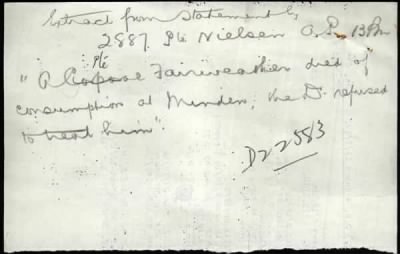 Extract from Statement by
2887 Pte Nielsen A. P. 13 Bn
Pte
"A Fairweather died of
consumption at Minden, the Dr. refused
to treat him".
D22583